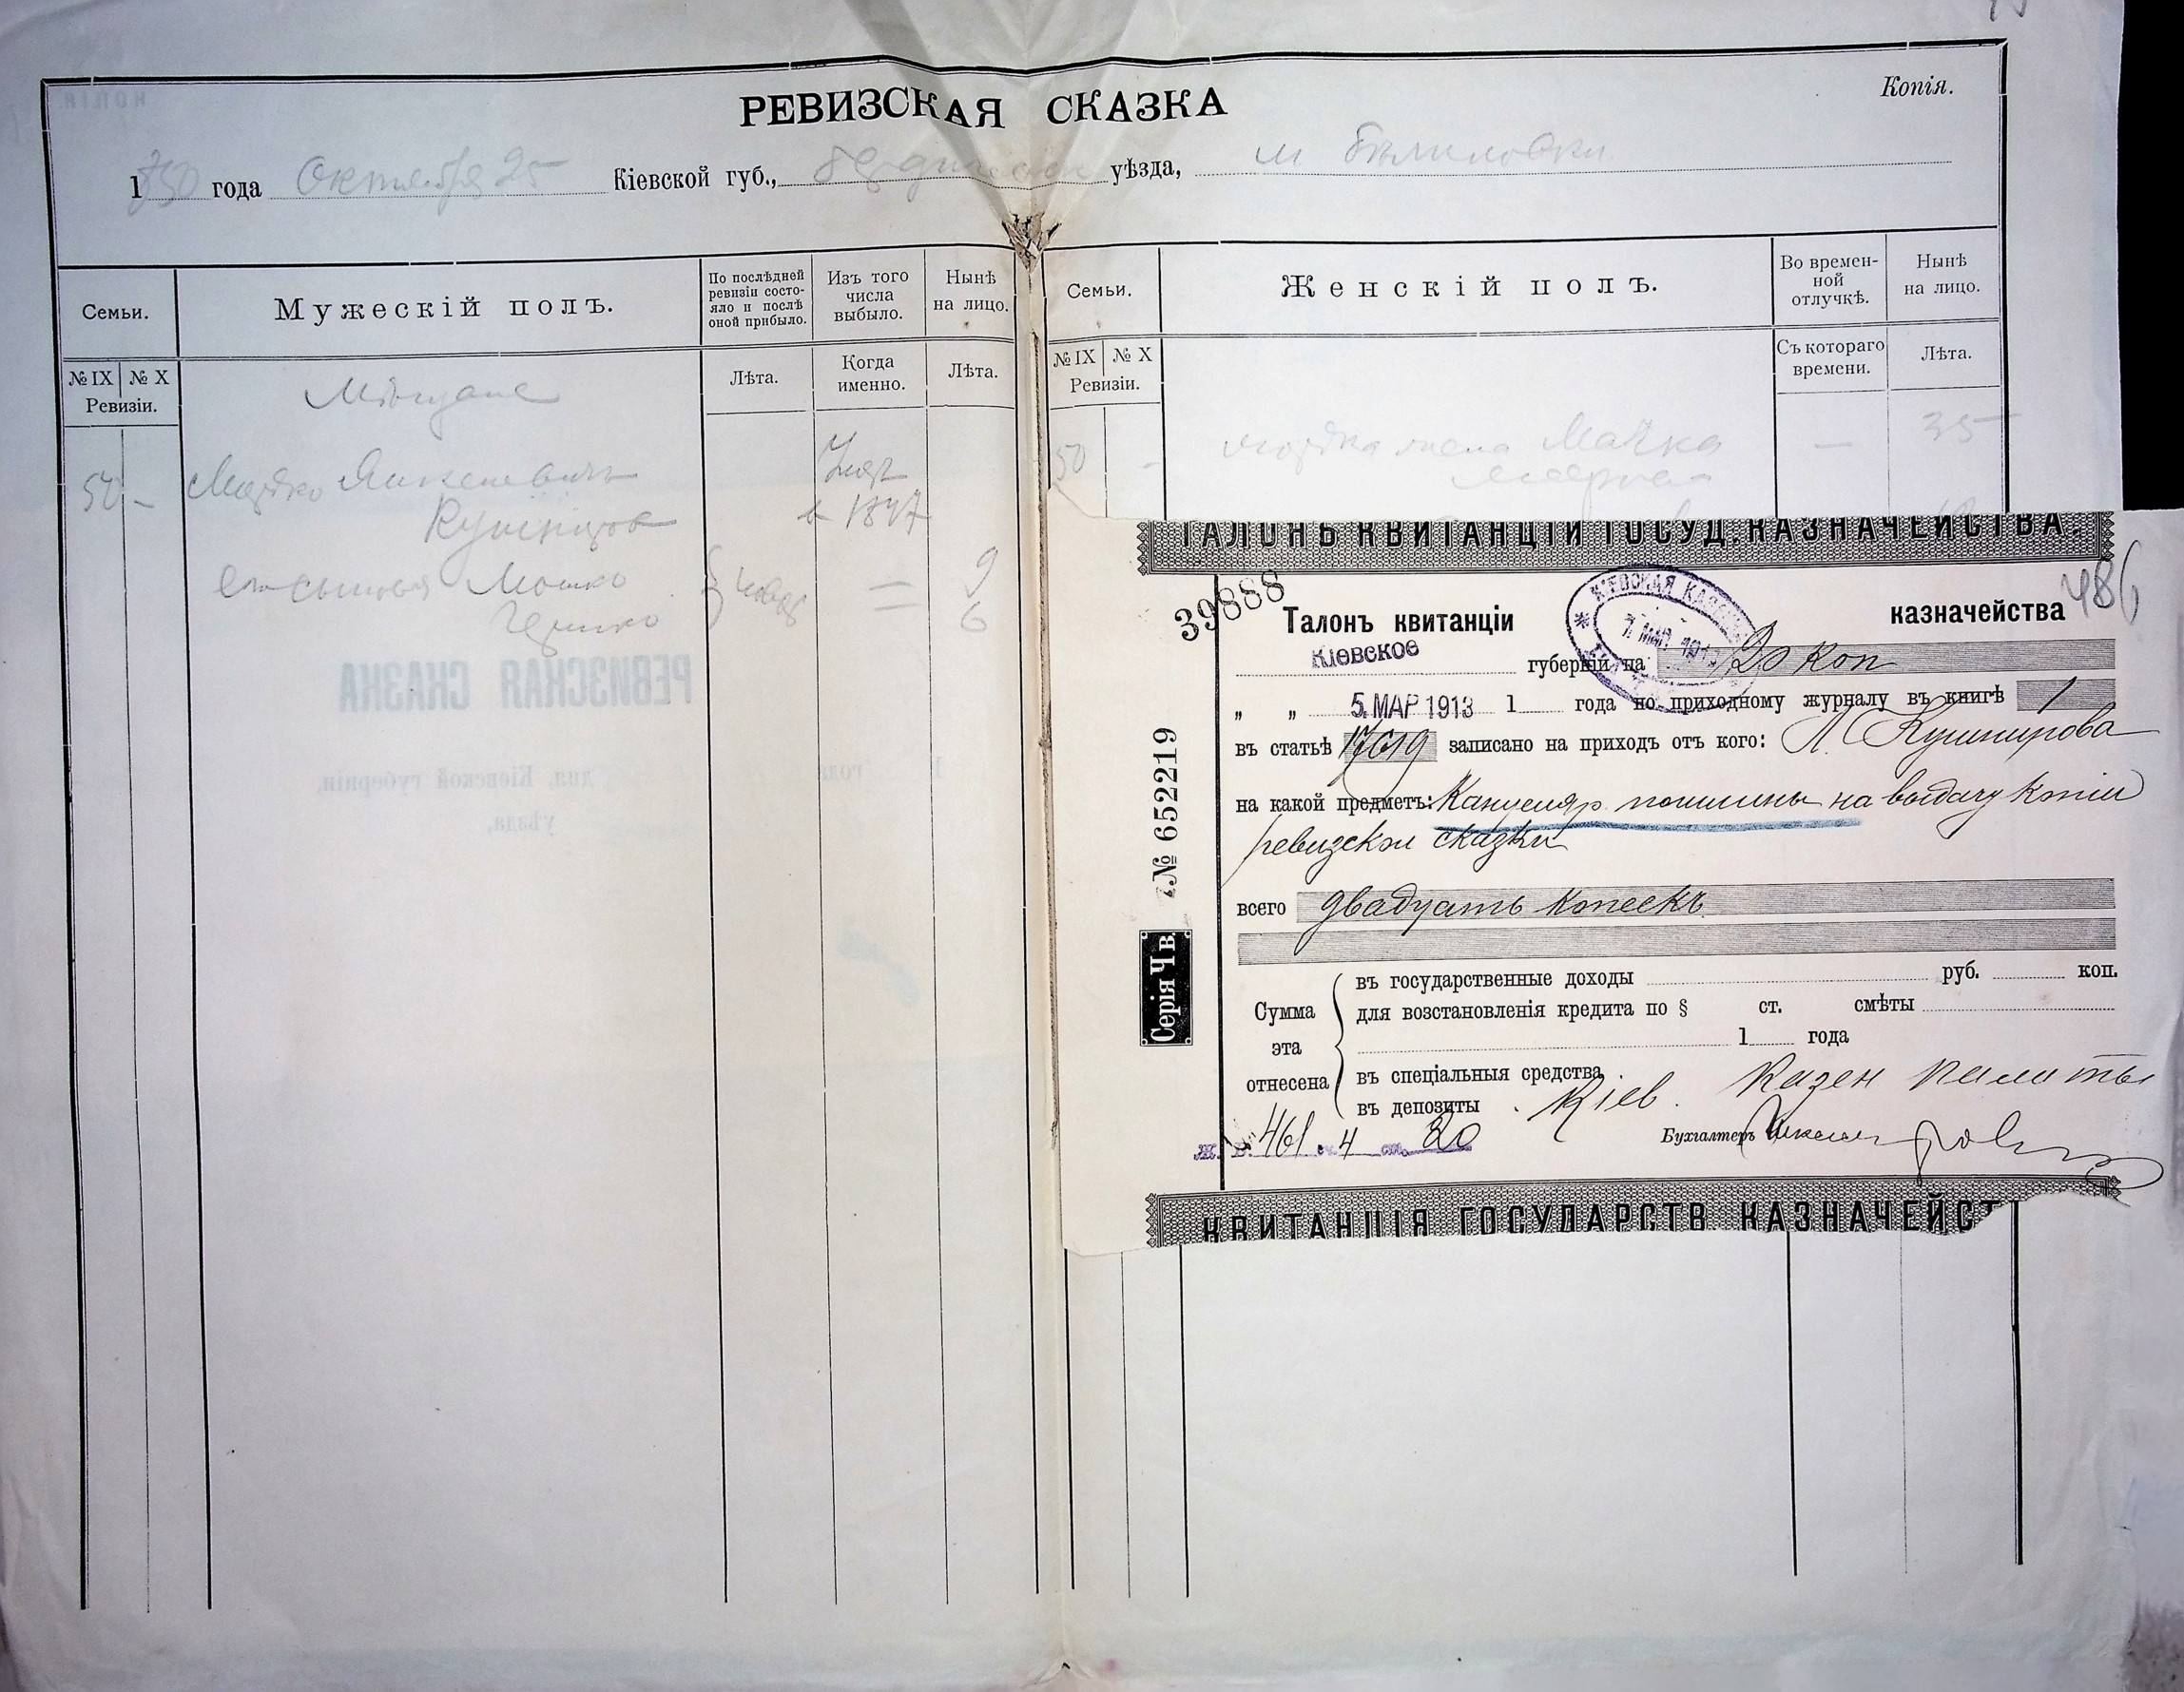 Копія.
РЕВИЗСКАЯ СКАЗКА
1850 года Октября 25 Кіевской губ., уѣзда, м Бѣлиловки
Семьи.
Мужескій полъ.
По послѣдней ревизіи состо-
яло и послѣ
оной прибыло.
Изъ того
числа
выбыло.
Нынѣ
на лицо.
Семьи.
Женскій полъ.
Во времен-
ной
отлучкѣ.
Нынѣ
на лицо.
№ IX № X
Ревизіи.
Мѣщане
Лѣта.
Когда
именно.
Лѣта.
№ IX № X
Ревизіи.
Съ котораго
времени.
Лѣта.
50 - Мордко Янкелевичъ
Кушнировъ
Умер
в 1847
его сыновья Мошко 9
Гершко 6
50 - Мордка жена Малка — 35
ТАЛОНЪ КВИТАНЦІИ ГОСУД. КАЗНАЧЕЙСТВА.
39888
486
Талонъ квитанціи казначейства
Кіевское губерніи на 20 коп
„ „ 5. МАР 1913 1 года по приходному журналу въ книгѣ 1
въ статьѣ 17619 записано на приходъ отъ кого: Л. Кушнирова
на какой предметъ: Канцеляр. пошлины на выдачу копіи
ревизской сказки
всего двадцать копеекъ
№ 652219
Серія Ч в.
Сумма
эта
отнесена
въ государственные доходы руб. коп.
для возстановленія кредита по § ст. смѣты
1 года
въ спеціальныя средства
въ депозиты Кіев. Казен Палаты
461 4 20
Бухгалтеръ
КВИТАНЦІЯ ГОСУДАРСТВ. КАЗНАЧЕЙСТ